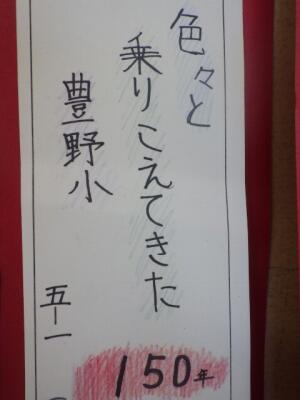 色々と
乗りこえてきた
豊野小
五ー一
150年